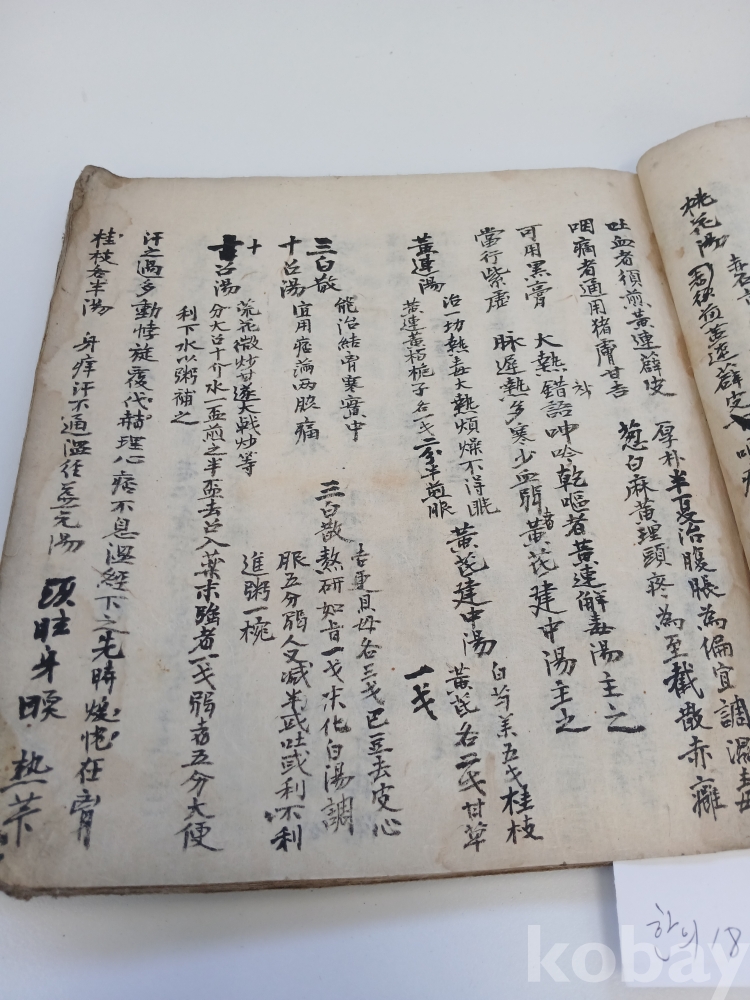 桃花湯
赤石
黃連薜皮
厚朴半夏治腹脹為偏宜調濕毒
葱白麻黃理頭疼為至截散赤癰
吐血者須煎黃連薜皮
咽痛者通用猪膚甘吉
可用黑膏
大熱錯語呻吟乾嘔者黃連解毒湯主之
當行紫虛
脉遲熱多寒少血弱者黃芪建中湯主之
黃連湯
治一切熱毒大熱煩燥不得眠
黃連黃栢梔子各一戔二分半煎服
黃芪建中湯
白芍藥五戔桂枝
黃芪各二戔甘草
一戔
三白散
能治結胷寒實中
十召湯
宜用痃滿两脇痛
三白散
吉更貝母各三戔巴豆去皮心
熬研如膏一戔末化白湯調
服五分弱人又减半或吐或利不利
進粥一椀
十召湯
芫花微炒甘遂大戟炒等
分大召十介水一盃煎之半盃去召入藥末強者一戔弱者五分大便
利下水以粥補之
汗之過多動悸旋覆代赭理心痞不息溫經下之先時煖怳在膏
桂枝各半湯
身痒汗不通溫徃益元湯
頭眩身
熱
한의 18
kobay